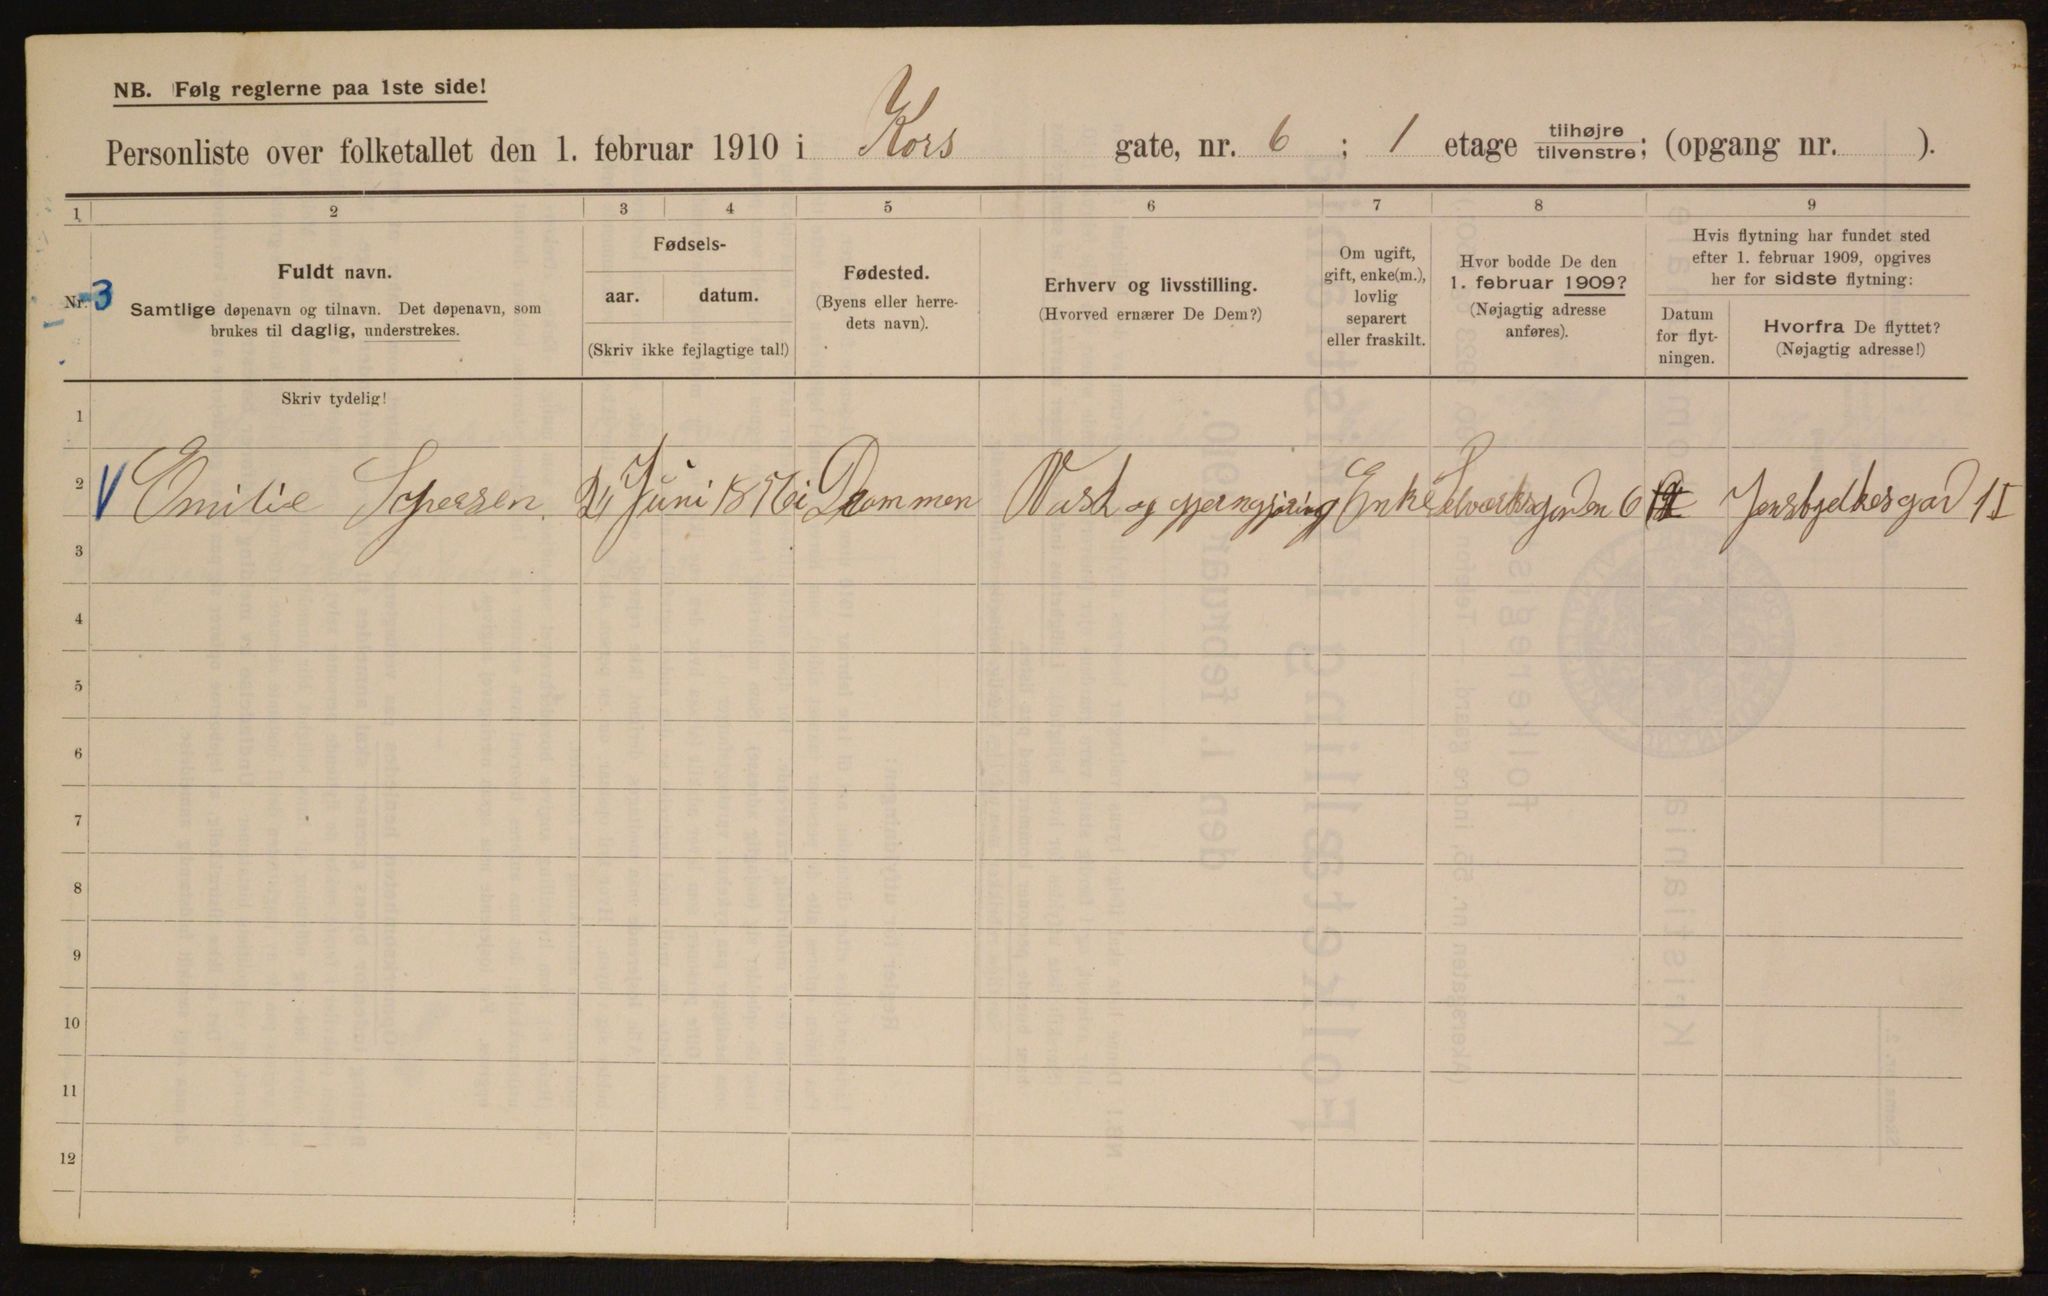 NB. Følg reglerne paa 1ste side!
Personliste over folketallet den 1. februar 1910 i Kors gate, nr. 6 ; 1 etage tilhøjre tilvenstre; (opgang nr. ).
1 2 3 4 5 6 7 8 9
Nr. 3
Fuldt navn.
Samtlige døpenavn og tilnavn. Det døpenavn, som
brukes til daglig, understrekes.
Fødsels-
aar. datum.
(Skriv ikke fejlagtige tal!)
Fødested.
(Byens eller herre-
dets navn).
Erhverv og livsstilling.
(Hvorved ernærer De Dem?)
Om ugift,
gift, enke(m.),
lovlig
separert
eller fraskilt.
Hvor bodde De den
1. februar 1909?
(Nøjagtig adresse
anføres).
Hvis flytning har fundet sted
efter 1. februar 1909, opgives
her for sidste flytning:
Datum
for flyt-
ningen.
Hvorfra De flyttet?
(Nøjagtig adresse!)
Skriv tydelig!
1
2 V Emilie Juni 1876 i Drammen Vask og gjerngjøring Enke Selværksgaden 6 Jensbjelkesgad 11
3
4
5
6
7
8
9
10
11
12